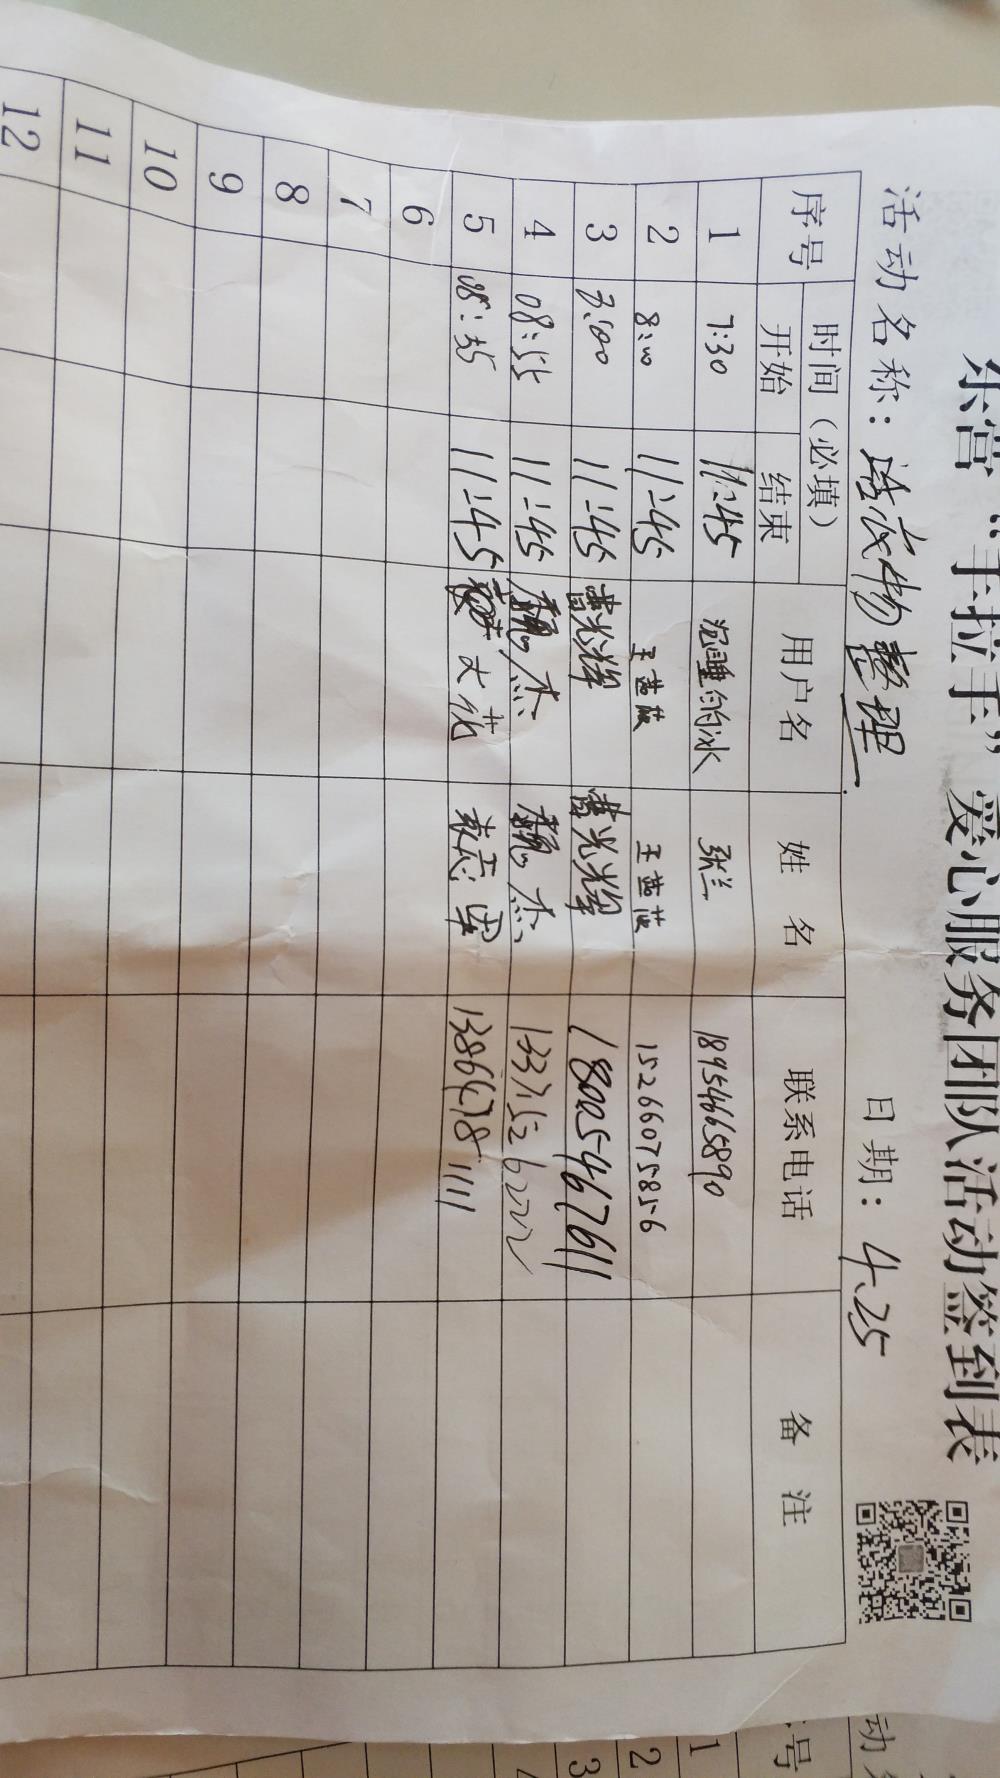 东营“手拉手”爱心服务团队活动签到表
活动名称: 衣物整理 日期: 4.25
序号 时间(必填) 用户名 姓名 联系电话 备注
开始 结束
1 7:30 11:45 沉睡的冰 张兰 18954665890
2 8:00 11:45 王茜薇 王茜薇 15266075856
3 8:00 11:45 曹光辉 曹光辉 18005467611
4 08:55 11:45 魏杰 魏杰
5 08:35 11:45
6
7
8
9
10
11
12